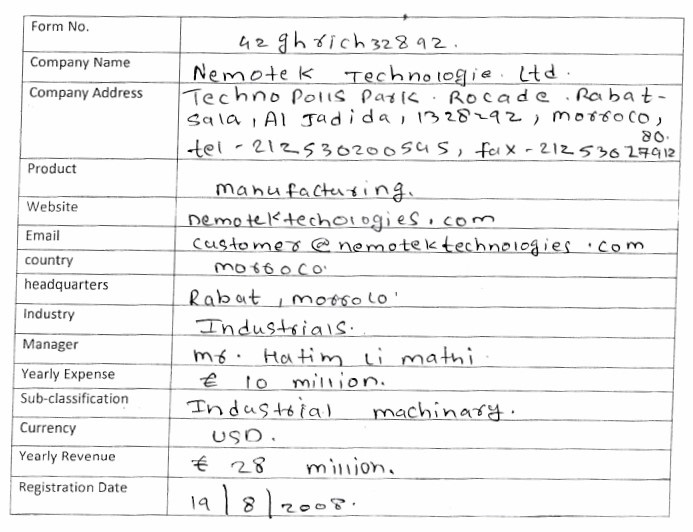 Form No. 42ghrich32892.
Company Name Nemotek Technologie. Ltd.
Company Address Techno Polls Park. Rocade. Rabat-
Sala, Al Jadida, 1328-92, morroco,
tel - 212530200545, fax - 21253627912
80.
Product manufacturing.
Website nemotektechologies.com
Email customer@nemotektechnologies.com
country morroco.
headquarters Rabat, morroco.
Industry Industrials.
Manager mr. Hatim li mathi
Yearly Expense € 10 million.
Sub-classification Industrial machinary.
Currency USD.
Yearly Revenue € 28 million.
Registration Date 19/8/2008.